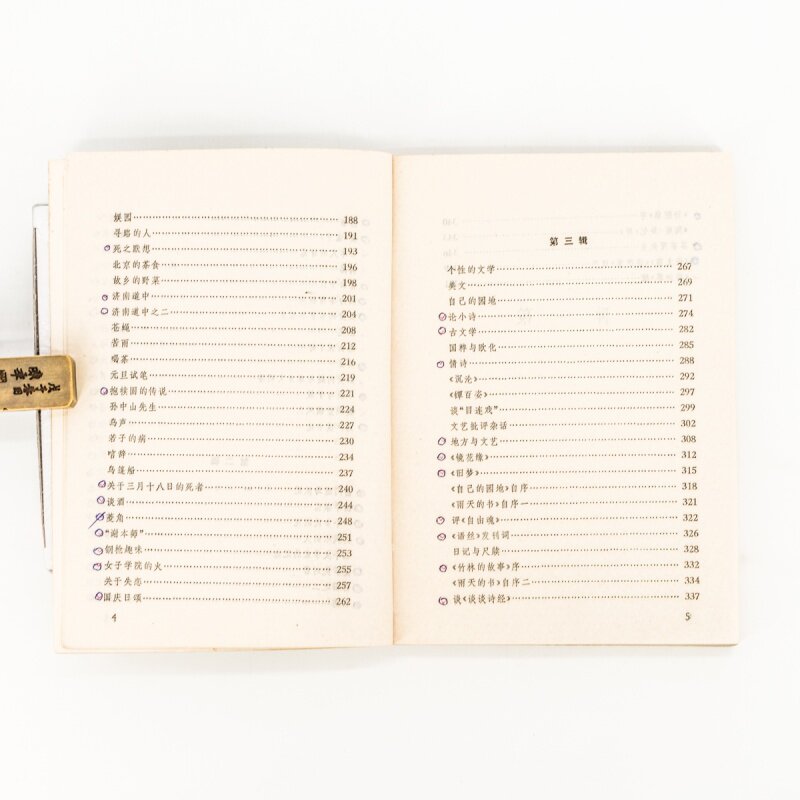 娱园 188
寻路的人 191
死之默想 193
北京的茶食 196
故乡的野菜 198
济南道中 201
济南道中之二 204
苍蝇 208
苦雨 212
喝茶 216
元旦试笔 219
抱犊固的传说 221
孙中山先生 224
鸟声 227
若子的病 230
唁辞 234
乌篷船 237
关于三月十八日的死者 240
谈酒 244
菱角 248
“谢本师” 251
钢枪趣味 253
女子学院的火 255
关于失恋 257
国庆日颂 262
4
第三辑
个性的文学 267
英文 269
自己的园地 271
论小诗 274
古文学 282
国粹与欧化 285
情诗 288
《沉沦》 292
《镡百姿》 297
谈“目连戏” 299
文艺批评杂话 302
地方与文艺 308
《镜花缘》 312
《旧梦》 315
《自己的园地》自序 318
《雨天的书》自序一 321
评《自由魂》 322
《语丝》发刊词 326
日记与尺牍 328
《竹林的故事》序 332
《雨天的书》自序二 334
谈《谈谈诗经》 337
5